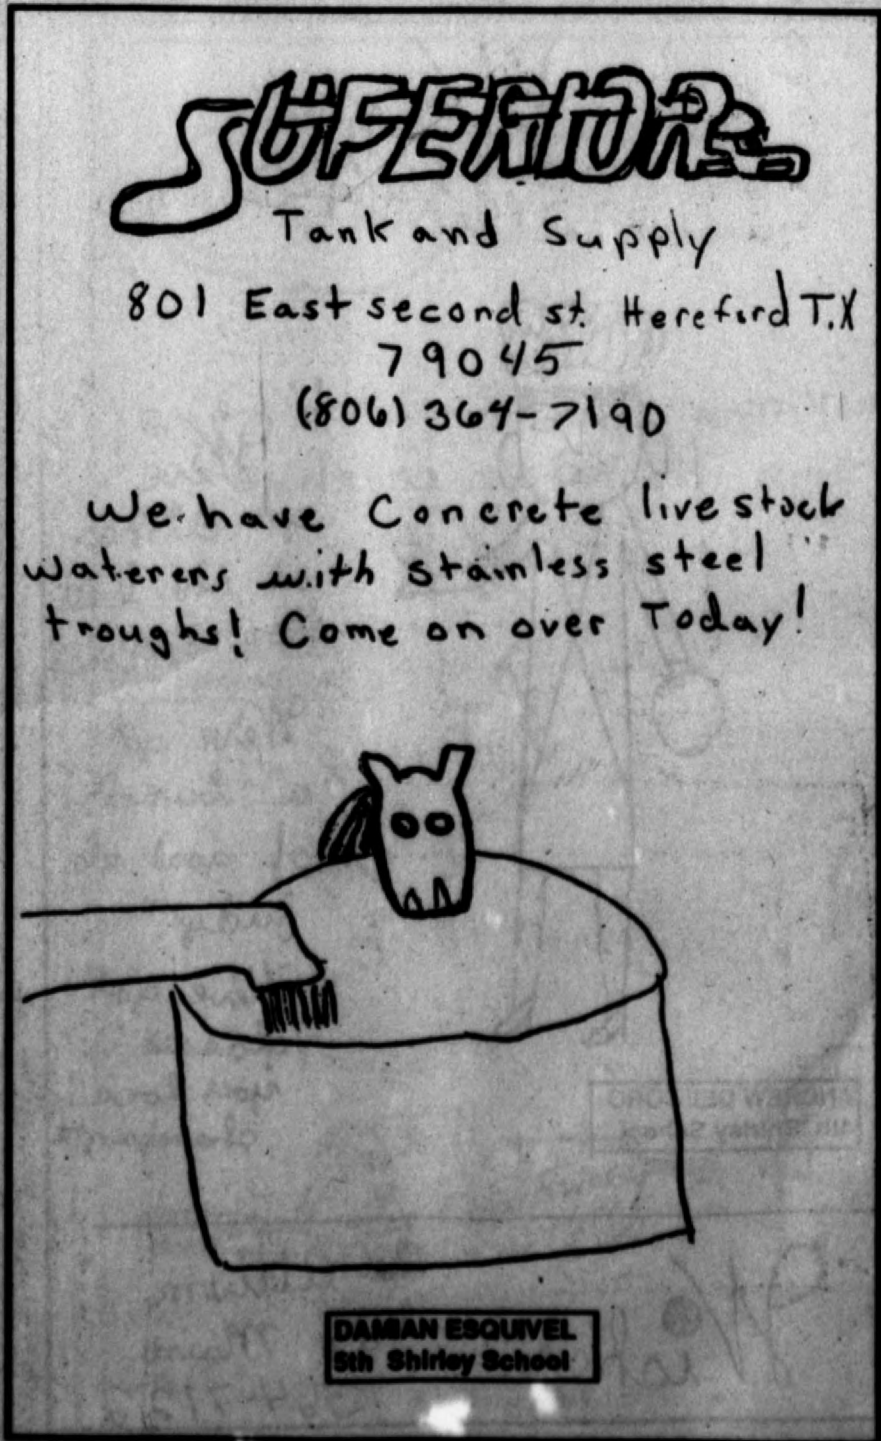 SUPERIOR
Tank and Supply
801 East second st. Hereford T.X
79045
(806) 364-7190
We have Concrete livestock
waterers with stainless steel
troughs! Come on over Today!
DAMIAN ESQUIVEL
5th Shirley School